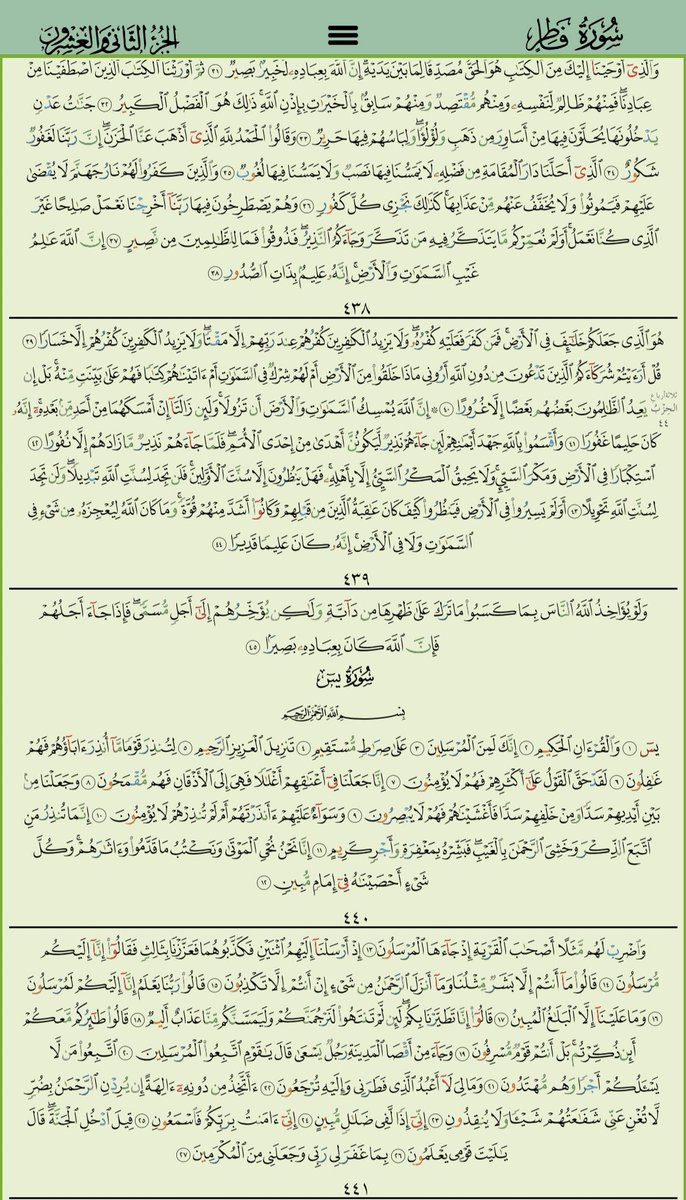 سُورَةُ فَاطِر
الجُزْءُ الثَّانِي وَالعِشْرُونَ
وَٱلَّذِىٓ أَوْحَيْنَآ إِلَيْكَ مِنَ ٱلْكِتَٰبِ هُوَ ٱلْحَقُّ مُصَدِّقًا لِّمَا بَيْنَ يَدَيْهِ ۗ إِنَّ ٱللَّهَ بِعِبَادِهِۦ لَخَبِيرٌۢ بَصِيرٌ ٣١ ثُمَّ أَوْرَثْنَا ٱلْكِتَٰبَ ٱلَّذِينَ ٱصْطَفَيْنَا مِنْ
عِبَادِنَا ۖ فَمِنْهُمْ ظَالِمٌ لِّنَفْسِهِۦ وَمِنْهُم مُّقْتَصِدٌ وَمِنْهُمْ سَابِقٌۢ بِٱلْخَيْرَٰتِ بِإِذْنِ ٱللَّهِ ۚ ذَٰلِكَ هُوَ ٱلْفَضْلُ ٱلْكَبِيرُ ٣٢ جَنَّٰتُ عَدْنٍ
يَدْخُلُونَهَا يُحَلَّوْنَ فِيهَا مِنْ أَسَاوِرَ مِن ذَهَبٍ وَلُؤْلُؤًا ۖ وَلِبَاسُهُمْ فِيهَا حَرِيرٌ ٣٣ وَقَالُوا۟ ٱلْحَمْدُ لِلَّهِ ٱلَّذِىٓ أَذْهَبَ عَنَّا ٱلْحَزَنَ ۖ إِنَّ رَبَّنَا لَغَفُورٌ
شَكُورٌ ٣٤ ٱلَّذِىٓ أَحَلَّنَا دَارَ ٱلْمُقَامَةِ مِن فَضْلِهِۦ لَا يَمَسُّنَا فِيهَا نَصَبٌ وَلَا يَمَسُّنَا فِيهَا لُغُوبٌ ٣٥ وَٱلَّذِينَ كَفَرُوا۟ لَهُمْ نَارُ جَهَنَّمَ لَا يُقْضَىٰ
عَلَيْهِمْ فَيَمُوتُوا۟ وَلَا يُخَفَّفُ عَنْهُم مِّنْ عَذَابِهَا ۚ كَذَٰلِكَ نَجْزِى كُلَّ كَفُورٍ ٣٦ وَهُمْ يَصْطَرِخُونَ فِيهَا رَبَّنَآ أَخْرِجْنَا نَعْمَلْ صَٰلِحًا غَيْرَ
ٱلَّذِى كُنَّا نَعْمَلُ ۚ أَوَلَمْ نُعَمِّرْكُم مَّا يَتَذَكَّرُ فِيهِ مَن تَذَكَّرَ وَجَآءَكُمُ ٱلنَّذِيرُ ۖ فَذُوقُوا۟ فَمَا لِلظَّٰلِمِينَ مِن نَّصِيرٍ ٣٧ إِنَّ ٱللَّهَ عَٰلِمُ
غَيْبِ ٱلسَّمَٰوَٰتِ وَٱلْأَرْضِ ۚ إِنَّهُۥ عَلِيمٌۢ بِذَاتِ ٱلصُّدُورِ ٣٨
٤٣٨
هُوَ ٱلَّذِى جَعَلَكُمْ خَلَٰٓئِفَ فِى ٱلْأَرْضِ ۚ فَمَن كَفَرَ فَعَلَيْهِ كُفْرُهُۥ ۖ وَلَا يَزِيدُ ٱلْكَٰفِرِينَ كُفْرُهُمْ عِندَ رَبِّهِمْ إِلَّا مَقْتًا ۖ وَلَا يَزِيدُ ٱلْكَٰفِرِينَ كُفْرُهُمْ إِلَّا خَسَارًا ٣٩
قُلْ أَرَءَيْتُمْ شُرَكَآءَكُمُ ٱلَّذِينَ تَدْعُونَ مِن دُونِ ٱللَّهِ أَرُونِى مَاذَا خَلَقُوا۟ مِنَ ٱلْأَرْضِ أَمْ لَهُمْ شِرْكٌ فِى ٱلسَّمَٰوَٰتِ أَمْ ءَاتَيْنَٰهُمْ كِتَٰبًا فَهُمْ عَلَىٰ بَيِّنَتٍ مِّنْهُ ۚ بَلْ إِن
يَعِدُ ٱلظَّٰلِمُونَ بَعْضُهُم بَعْضًا إِلَّا غُرُورًا ٤٠ ۞ إِنَّ ٱللَّهَ يُمْسِكُ ٱلسَّمَٰوَٰتِ وَٱلْأَرْضَ أَن تَزُولَا ۚ وَلَئِن زَالَتَآ إِنْ أَمْسَكَهُمَا مِنْ أَحَدٍ مِّنۢ بَعْدِهِۦٓ ۚ إِنَّهُۥ
ثلاثة أرباع
الحزب
٤٤
كَانَ حَلِيمًا غَفُورًا ٤١ وَأَقْسَمُوا۟ بِٱللَّهِ جَهْدَ أَيْمَٰنِهِمْ لَئِن جَآءَهُمْ نَذِيرٌ لَّيَكُونُنَّ أَهْدَىٰ مِنْ إِحْدَى ٱلْأُمَمِ ۖ فَلَمَّا جَآءَهُمْ نَذِيرٌ مَّا زَادَهُمْ إِلَّا نُفُورًا ٤٢
ٱسْتِكْبَارًا فِى ٱلْأَرْضِ وَمَكْرَ ٱلسَّيِّئِ ۚ وَلَا يَحِيقُ ٱلْمَكْرُ ٱلسَّيِّئُ إِلَّا بِأَهْلِهِۦ ۚ فَهَلْ يَنظُرُونَ إِلَّا سُنَّتَ ٱلْأَوَّلِينَ ۚ فَلَن تَجِدَ لِسُنَّتِ ٱللَّهِ تَبْدِيلًا ۖ وَلَن تَجِدَ
لِسُنَّتِ ٱللَّهِ تَحْوِيلًا ٤٣ أَوَلَمْ يَسِيرُوا۟ فِى ٱلْأَرْضِ فَيَنظُرُوا۟ كَيْفَ كَانَ عَٰقِبَةُ ٱلَّذِينَ مِن قَبْلِهِمْ وَكَانُوٓا۟ أَشَدَّ مِنْهُمْ قُوَّةً ۚ وَمَا كَانَ ٱللَّهُ لِيُعْجِزَهُۥ مِن شَىْءٍ فِى
ٱلسَّمَٰوَٰتِ وَلَا فِى ٱلْأَرْضِ ۚ إِنَّهُۥ كَانَ عَلِيمًا قَدِيرًا ٤٤
٤٣٩
وَلَوْ يُؤَاخِذُ ٱللَّهُ ٱلنَّاسَ بِمَا كَسَبُوا۟ مَا تَرَكَ عَلَىٰ ظَهْرِهَا مِن دَآبَّةٍ وَلَٰكِن يُؤَخِّرُهُمْ إِلَىٰٓ أَجَلٍ مُّسَمًّى ۖ فَإِذَا جَآءَ أَجَلُهُمْ
فَإِنَّ ٱللَّهَ كَانَ بِعِبَادِهِۦ بَصِيرًۢا ٤٥
سُورَةُ يسٓ
بِسْمِ ٱللَّهِ ٱلرَّحْمَٰنِ ٱلرَّحِيمِ
يسٓ ١ وَٱلْقُرْءَانِ ٱلْحَكِيمِ ٢ إِنَّكَ لَمِنَ ٱلْمُرْسَلِينَ ٣ عَلَىٰ صِرَٰطٍ مُّسْتَقِيمٍ ٤ تَنزِيلَ ٱلْعَزِيزِ ٱلرَّحِيمِ ٥ لِتُنذِرَ قَوْمًا مَّآ أُنذِرَ ءَابَآؤُهُمْ فَهُمْ
غَٰفِلُونَ ٦ لَقَدْ حَقَّ ٱلْقَوْلُ عَلَىٰٓ أَكْثَرِهِمْ فَهُمْ لَا يُؤْمِنُونَ ٧ إِنَّا جَعَلْنَا فِىٓ أَعْنَٰقِهِمْ أَغْلَٰلًا فَهِىَ إِلَى ٱلْأَذْقَانِ فَهُم مُّقْمَحُونَ ٨ وَجَعَلْنَا مِنۢ
بَيْنِ أَيْدِيهِمْ سَدًّا وَمِنْ خَلْفِهِمْ سَدًّا فَأَغْشَيْنَٰهُمْ فَهُمْ لَا يُبْصِرُونَ ٩ وَسَوَآءٌ عَلَيْهِمْ ءَأَنذَرْتَهُمْ أَمْ لَمْ تُنذِرْهُمْ لَا يُؤْمِنُونَ ١٠ إِنَّمَا تُنذِرُ مَنِ
ٱتَّبَعَ ٱلذِّكْرَ وَخَشِىَ ٱلرَّحْمَٰنَ بِٱلْغَيْبِ ۖ فَبَشِّرْهُ بِمَغْفِرَةٍ وَأَجْرٍ كَرِيمٍ ١١ إِنَّا نَحْنُ نُحْىِ ٱلْمَوْتَىٰ وَنَكْتُبُ مَا قَدَّمُوا۟ وَءَاثَٰرَهُمْ ۚ وَكُلَّ
شَىْءٍ أَحْصَيْنَٰهُ فِىٓ إِمَامٍ مُّبِينٍ ١٢
٤٤٠
وَٱضْرِبْ لَهُم مَّثَلًا أَصْحَٰبَ ٱلْقَرْيَةِ إِذْ جَآءَهَا ٱلْمُرْسَلُونَ ١٣ إِذْ أَرْسَلْنَآ إِلَيْهِمُ ٱثْنَيْنِ فَكَذَّبُوهُمَا فَعَزَّزْنَا بِثَالِثٍ فَقَالُوٓا۟ إِنَّآ إِلَيْكُم
مُّرْسَلُونَ ١٤ قَالُوا۟ مَآ أَنتُمْ إِلَّا بَشَرٌ مِّثْلُنَا وَمَآ أَنزَلَ ٱلرَّحْمَٰنُ مِن شَىْءٍ إِنْ أَنتُمْ إِلَّا تَكْذِبُونَ ١٥ قَالُوا۟ رَبُّنَا يَعْلَمُ إِنَّآ إِلَيْكُمْ لَمُرْسَلُونَ
١٦ وَمَا عَلَيْنَآ إِلَّا ٱلْبَلَٰغُ ٱلْمُبِينُ ١٧ قَالُوٓا۟ إِنَّا تَطَيَّرْنَا بِكُمْ ۖ لَئِن لَّمْ تَنتَهُوا۟ لَنَرْجُمَنَّكُمْ وَلَيَمَسَّنَّكُم مِّنَّا عَذَابٌ أَلِيمٌ ١٨ قَالُوا۟ طَٰٓئِرُكُم مَّعَكُمْ ۚ
أَئِن ذُكِّرْتُم ۚ بَلْ أَنتُمْ قَوْمٌ مُّسْرِفُونَ ١٩ وَجَآءَ مِنْ أَقْصَا ٱلْمَدِينَةِ رَجُلٌ يَسْعَىٰ قَالَ يَٰقَوْمِ ٱتَّبِعُوا۟ ٱلْمُرْسَلِينَ ٢٠ ٱتَّبِعُوا۟ مَن لَّا
يَسْـَٔلُكُمْ أَجْرًا وَهُم مُّهْتَدُونَ ٢١ وَمَا لِىَ لَآ أَعْبُدُ ٱلَّذِى فَطَرَنِى وَإِلَيْهِ تُرْجَعُونَ ٢٢ ءَأَتَّخِذُ مِن دُونِهِۦٓ ءَالِهَةً إِن يُرِدْنِ ٱلرَّحْمَٰنُ بِضُرٍّ
لَّا تُغْنِ عَنِّى شَفَٰعَتُهُمْ شَيْـًٔا وَلَا يُنقِذُونِ ٢٣ إِنِّىٓ إِذًا لَّفِى ضَلَٰلٍ مُّبِينٍ ٢٤ إِنِّىٓ ءَامَنتُ بِرَبِّكُمْ فَٱسْمَعُونِ ٢٥ قِيلَ ٱدْخُلِ ٱلْجَنَّةَ ۖ قَالَ
يَٰلَيْتَ قَوْمِى يَعْلَمُونَ ٢٦ بِمَا غَفَرَ لِى رَبِّى وَجَعَلَنِى مِنَ ٱلْمُكْرَمِينَ ٢٧
٤٤١